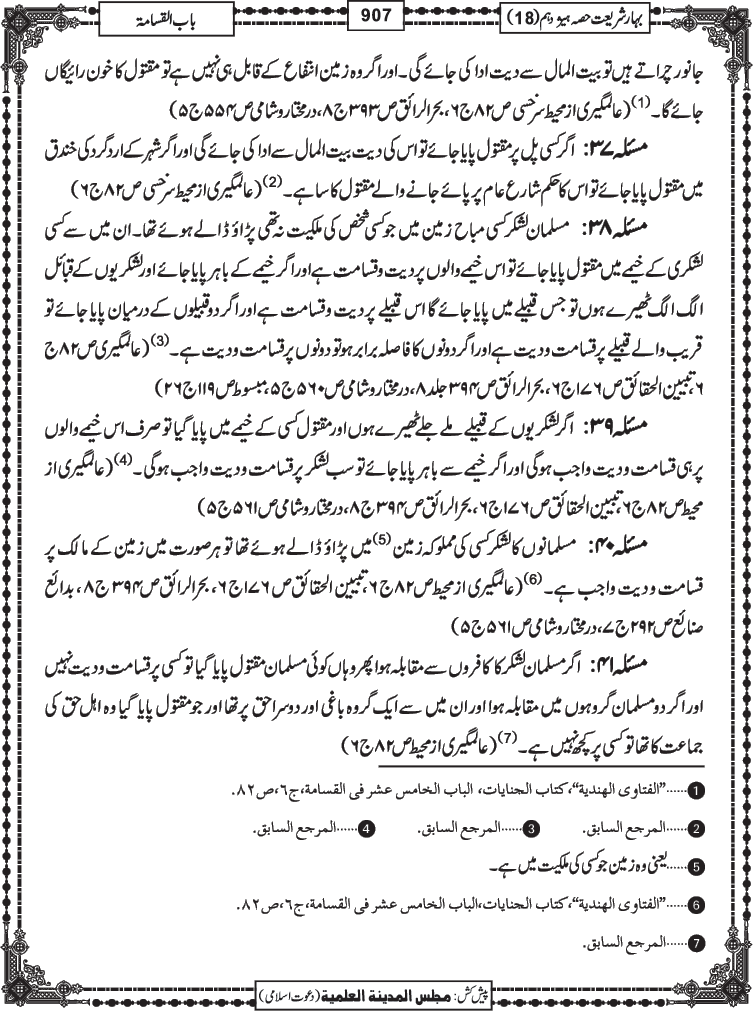 بہارِ شریعت حصہ ہیژدہم (18)
907
باب القسامۃ
جانور چراتے ہیں تو بیت المال سے دیت ادا کی جائے گی۔ اور اگر وہ زمین انتفاع کے قابل ہی نہیں ہے تو مقتول کا خون رائیگاں
جائے گا۔(1) (عالمگیری از محیط سرخسی ص۸۲ ج۶، بحرالرائق ص۳۹۳ ج۸، درمختار و شامی ص۵۵۴ ج۵)
مسئلہ ۳۷: اگر کسی پل پر مقتول پایا جائے تو اس کی دیت بیت المال سے ادا کی جائے گی اور اگر شہر کے اردگرد کی خندق
میں مقتول پایا جائے تو اس کا حکم شارع عام پر پائے جانے والے مقتول کا سا ہے۔(2) (عالمگیری از محیط سرخسی ص۸۲ ج۶)
مسئلہ ۳۸: مسلمان لشکر کسی مباح زمین میں جو کسی شخص کی ملکیت نہ تھی پڑاؤ ڈالے ہوئے تھا۔ ان میں سے کسی
لشکری کے خیمے میں مقتول پایا جائے تو اس خیمے والوں پر دیت و قسامت ہے اور اگر خیمے کے باہر پایا جائے اور لشکریوں کے قبائل
الگ الگ ٹھیرے ہوں تو جس قبیلے میں پایا جائے گا اس قبیلے پر دیت و قسامت ہے اور اگر دو قبیلوں کے درمیان پایا جائے تو
قریب والے قبیلے پر قسامت و دیت ہے اور اگر دونوں کا فاصلہ برابر ہو تو دونوں پر قسامت و دیت ہے۔(3) (عالمگیری ص۸۲ ج
۶، تبیین الحقائق ص۱۷۶ ج۶، بحرالرائق ص۳۹۴ جلد ۸، درمختار و شامی ص۵۶۰ ج۵، مبسوط ص۱۱۹ ج۲۶)
مسئلہ ۳۹: اگر لشکریوں کے قبیلے ملے جلے ٹھیرے ہوں اور مقتول کسی کے خیمے میں پایا گیا تو صرف اس خیمے والوں
پر ہی قسامت و دیت واجب ہوگی اور اگر خیمے سے باہر پایا جائے تو سب لشکر پر قسامت و دیت واجب ہوگی۔(4) (عالمگیری از
محیط ص۸۲ ج۶، تبیین الحقائق ص۱۷۶ ج۶، بحرالرائق ص۳۹۴ ج۸، درمختار و شامی ص۵۶۱ ج۵)
مسئلہ ۴۰: مسلمانوں کا لشکر کسی کی مملوکہ زمین(5) میں پڑاؤ ڈالے ہوئے تھا تو ہر صورت میں زمین کے مالک پر
قسامت و دیت واجب ہے۔(6) (عالمگیری از محیط ص۸۲ ج۶، تبیین الحقائق ص۱۷۶ ج۶، بحرالرائق ص۳۹۴ ج۸، بدائع
صنائع ص۲۹۲ ج۷، درمختار و شامی ص۵۶۱ ج۵)
مسئلہ ۴۱: اگر مسلمان لشکر کا کافروں سے مقابلہ ہوا پھر وہاں کوئی مسلمان مقتول پایا گیا تو کسی پر قسامت و دیت نہیں
اور اگر دو مسلمان گروہوں میں مقابلہ ہوا اور ان میں سے ایک گروہ باغی اور دوسرا حق پر تھا اور جو مقتول پایا گیا وہ اہل حق کی
جماعت کا تھا تو کسی پر کچھ نہیں ہے۔(7) (عالمگیری از محیط ص۸۲ ج۶)
1......"الفتاوی الهندية"، كتاب الجنايات، الباب الخامس عشر فى القسامة، ج٦، ص٨٢.
2......المرجع السابق. 3......المرجع السابق. 4......المرجع السابق.
5......یعنی وہ زمین جو کسی کی ملکیت میں ہے۔
6......"الفتاوی الهندية"، كتاب الجنايات، الباب الخامس عشر فى القسامة، ج٦، ص٨٢.
7......المرجع السابق.
پیش کش: مجلس المدینۃ العلمیۃ (دعوت اسلامی)